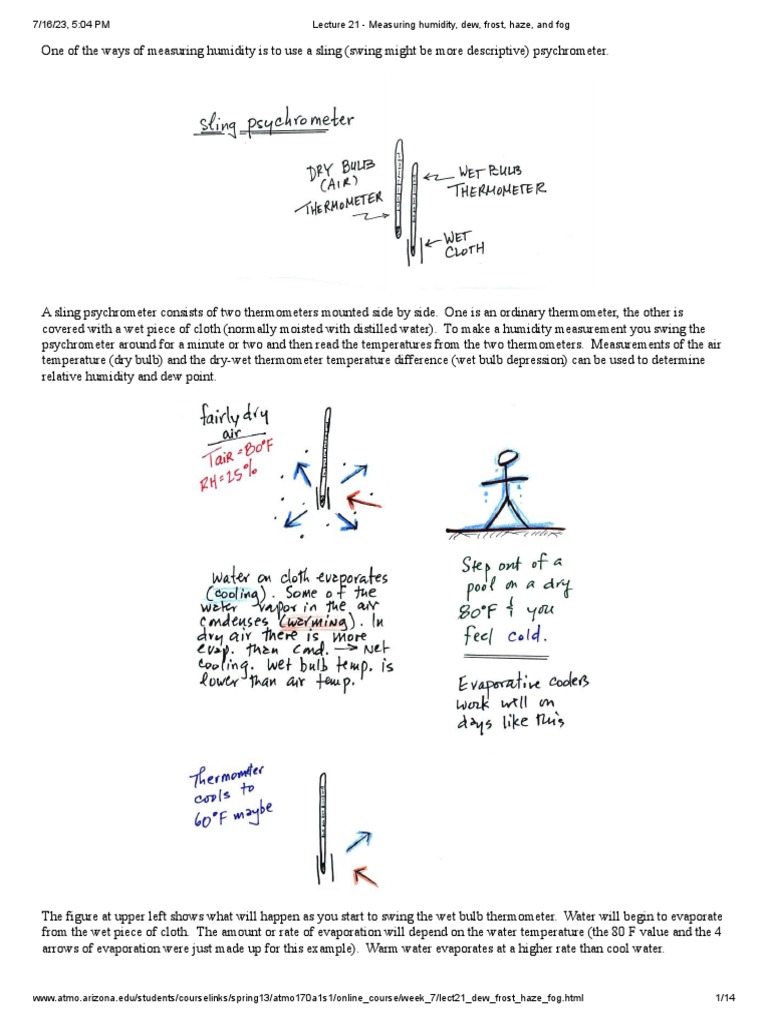 7/16/23, 5:04 PM
Lecture 21 - Measuring humidity, dew, frost, haze, and fog
One of the ways of measuring humidity is to use a sling (swing might be more descriptive) psychrometer.
sling psychrometer
DRY BULB
(AIR)
THERMOMETER
WET BULB
THERMOMETER
WET
CLOTH
A sling psychrometer consists of two thermometers mounted side by side. One is an ordinary thermometer, the other is
covered with a wet piece of cloth (normally moisted with distilled water). To make a humidity measurement you swing the
psychrometer around for a minute or two and then read the temperatures from the two thermometers. Measurements of the air
temperature (dry bulb) and the dry-wet thermometer temperature difference (wet bulb depression) can be used to determine
relative humidity and dew point.
fairly dry
air
TAIR = 80°F
RH = 25%
Water on cloth evaporates
(cooling). Some of the
water vapor in the air
condenses (warming). In
dry air there is more
evap. than cond. → Net
cooling. Wet bulb temp. is
lower than air temp.
Step out of a
pool on a dry
80°F & you
feel cold.
Evaporative coolers
work well on
days like this
Thermometer
cools to
60°F maybe
The figure at upper left shows what will happen as you start to swing the wet bulb thermometer. Water will begin to evaporate
from the wet piece of cloth. The amount or rate of evaporation will depend on the water temperature (the 80 F value and the 4
arrows of evaporation were just made up for this example). Warm water evaporates at a higher rate than cool water.
www.atmo.arizona.edu/students/courselinks/spring13/atmo170a1s1/online_course/week_7/lect21_dew_frost_haze_fog.html
1/14